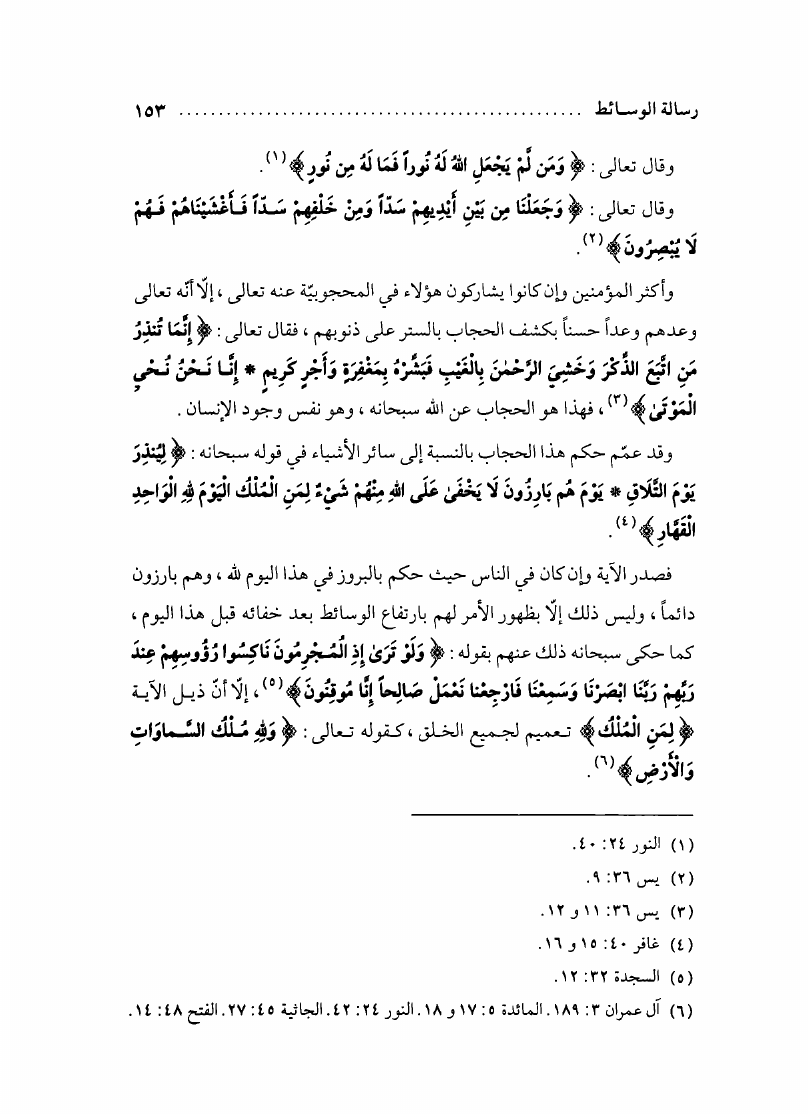 رسالة الوسائط ................................................ ١٥٣
وقال تعالى : ﴿ وَمَن لَّمْ يَجْعَلِ اللهُ لَهُ نُوراً فَمَا لَهُ مِن نُورٍ ﴾(١).
وقال تعالى : ﴿ وَجَعَلْنَا مِن بَيْنِ أَيْدِيهِمْ سَدّاً وَمِنْ خَلْفِهِمْ سَدّاً فَأَغْشَيْنَاهُمْ فَهُمْ
لَا يُبْصِرُونَ ﴾(٢).
وأكثر المؤمنين وإن كانوا يشاركون هؤلاء في المحجوبيّة عنه تعالى ، إلّا أنّه تعالى
وعدهم وعداً حسناً بكشف الحجاب بالستر على ذنوبهم ، فقال تعالى : ﴿ إِنَّمَا تُنذِرُ
مَنِ اتَّبَعَ الذِّكْرَ وَخَشِيَ الرَّحْمٰنَ بِالْغَيْبِ فَبَشِّرْهُ بِمَغْفِرَةٍ وَأَجْرٍ كَرِيمٍ * إِنَّا نَحْنُ نُحْيِ
الْمَوْتَىٰ ﴾(٣) ، فهذا هو الحجاب عن الله سبحانه ، وهو نفس وجود الإنسان .
وقد عمّم حكم هذا الحجاب بالنسبة إلى سائر الأشياء في قوله سبحانه : ﴿ لِيُنذِرَ
يَوْمَ التَّلَاقِ * يَوْمَ هُم بَارِزُونَ لَا يَخْفَىٰ عَلَى اللهِ مِنْهُمْ شَيْءٌ لِمَنِ الْمُلْكُ الْيَوْمَ لِلهِ الْوَاحِدِ
الْقَهَّارِ ﴾(٤).
فصدر الآية وإن كان في الناس حيث حكم بالبروز في هذا اليوم لله ، وهم بارزون
دائماً ، وليس ذلك إلّا بظهور الأمر لهم بارتفاع الوسائط بعد خفائه قبل هذا اليوم ،
كما حكى سبحانه ذلك عنهم بقوله : ﴿ وَلَوْ تَرَىٰ إِذِ الْمُجْرِمُونَ نَاكِسُوا رُؤُوسِهِمْ عِندَ
رَبِّهِمْ رَبَّنَا ابْصَرْنَا وَسَمِعْنَا فَارْجِعْنا نَعْمَلْ صَالِحاً إِنَّا مُوقِنُونَ ﴾(٥) ، إلّا أنّ ذيل الآية
﴿ لِمَنِ الْمُلْكُ ﴾ تعميم لجميع الخلق ، كقوله تعالى : ﴿ وَلِلهِ مُلْكُ السَّماوَاتِ
وَالْأَرْضِ ﴾(٦).
(١) النور ٢٤ : ٤٠.
(٢) يس ٣٦ : ٩.
(٣) يس ٣٦ : ١١ و ١٢.
(٤) غافر ٤٠ : ١٥ و ١٦.
(٥) السجدة ٣٢ : ١٢.
(٦) آل عمران ٣ : ١٨٩. المائدة ٥ : ١٧ و ١٨. النور ٢٤ : ٤٢. الجاثية ٤٥ : ٢٧. الفتح ٤٨ : ١٤.